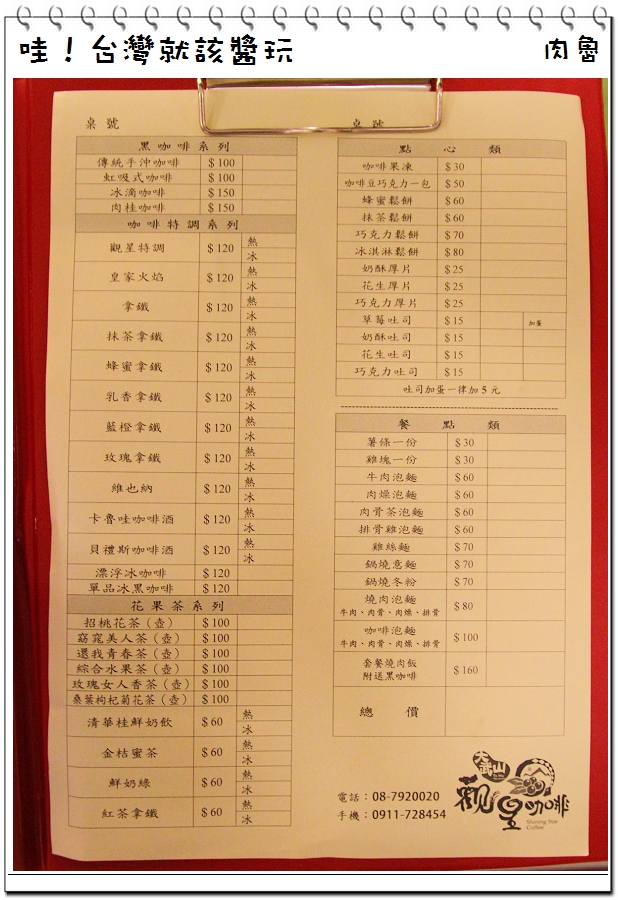 哇！台灣就該醬玩
肉魯
桌號
黑咖啡系列
傳統手沖咖啡 $100
虹吸式咖啡 $100
冰滴咖啡 $150
肉桂咖啡 $150
咖啡特調系列
觀星特調 $120 熱 冰
皇家火焰 $120 熱 冰
拿鐵 $120 熱 冰
抹茶拿鐵 $120 熱 冰
蜂蜜拿鐵 $120 熱 冰
乳香拿鐵 $120 熱 冰
藍橙拿鐵 $120 熱 冰
玫瑰拿鐵 $120 熱 冰
維也納 $120 熱 冰
卡魯哇咖啡酒 $120 熱 冰
貝禮斯咖啡酒 $120 熱 冰
漂浮冰咖啡 $120
單品冰黑咖啡 $120
花果茶系列
招桃花茶（壺） $100
窈窕美人茶（壺） $100
還我青春茶（壺） $100
綜合水果茶（壺） $100
玫瑰女人香茶（壺） $100
桑葉枸杞菊花茶（壺） $100
清華桂鮮奶飲 $60 熱 冰
金桔蜜茶 $60 熱 冰
鮮奶綠 $60 熱 冰
紅茶拿鐵 $60 熱 冰
桌號
點心類
咖啡果凍 $30
咖啡豆巧克力一包 $50
蜂蜜鬆餅 $60
抹茶鬆餅 $60
巧克力鬆餅 $70
冰淇淋鬆餅 $80
奶酥厚片 $25
花生厚片 $25
巧克力厚片 $25
草莓吐司 $15 加蛋
奶酥吐司 $15
花生吐司 $15
巧克力吐司 $15
吐司加蛋一律加5元
餐點類
薯條一份 $30
雞塊一份 $30
牛肉泡麵 $60
肉燥泡麵 $60
肉骨茶泡麵 $60
排骨雞泡麵 $60
雞絲麵 $70
鍋燒意麵 $70
鍋燒冬粉 $70
燒肉泡麵 $80
牛肉、肉骨、肉燥、排骨
咖啡泡麵 $100
牛肉、肉骨、肉燥、排骨
套餐燒肉飯 $160
附送黑咖啡
總價
電話：08-7920020
手機：0911-728454
大武山
觀星咖啡
Shining Star
Coffee